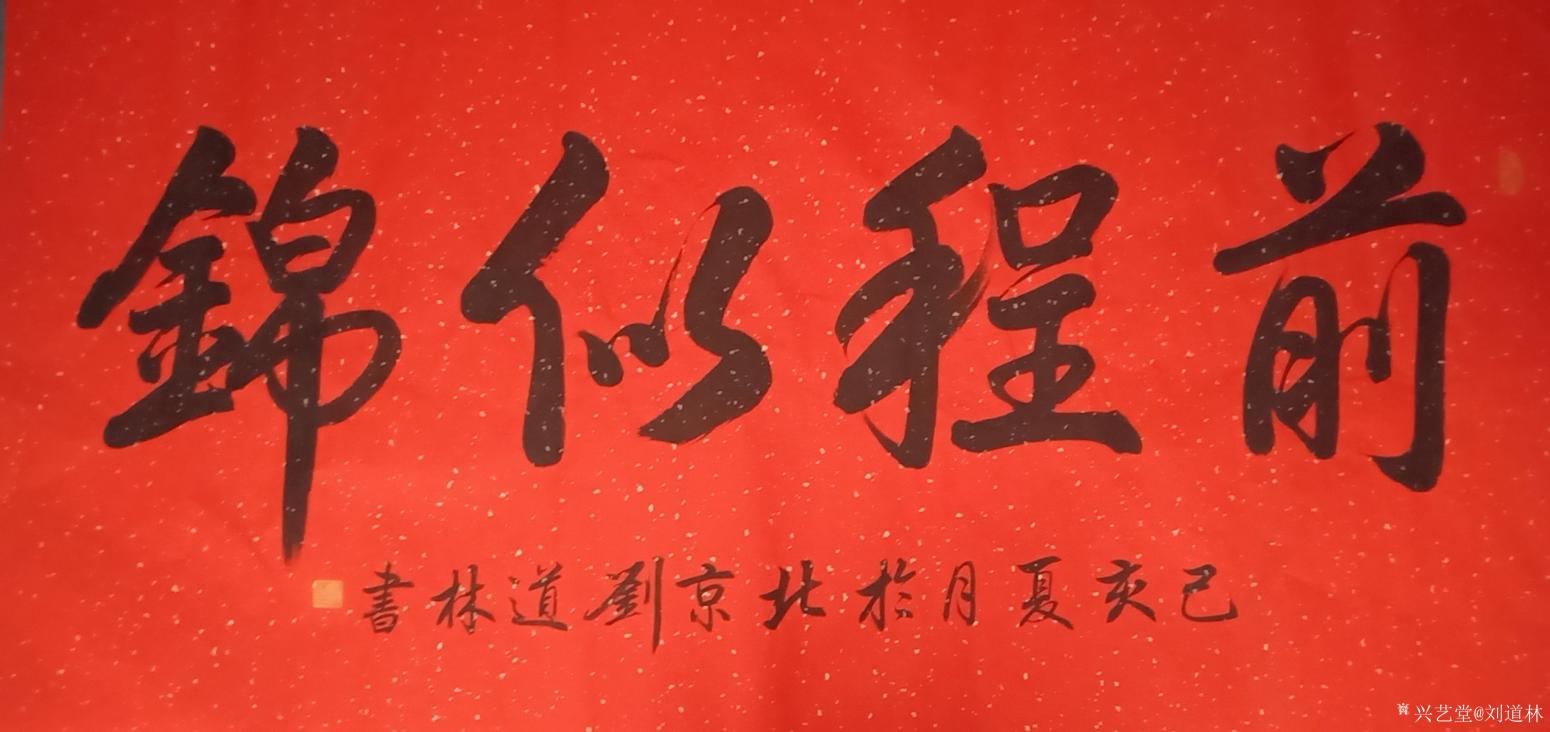 前程似錦
己亥夏月於北京劉道林書
兴艺堂@刘道林